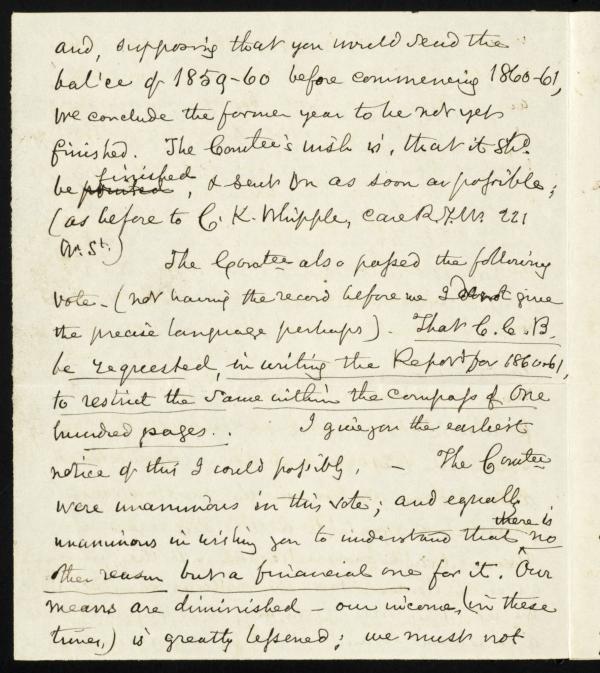 and, supposing that you would send the
bal'ce of 1859-60 before commencing 1860-61,
we conclude the former year to be not yet
finished. The Comtee's wish is, that it shd.
be printed finished, & sent on as soon as possible;
(as before to C. K. Whipple, care R.F.W. 221
W. St.)
The Comtee also passed the following
vote - (not having the record before me I do not give
the precise language perhaps). That C. C. B.
be requested, in writing the Report for 1860-61,
to restrict the same within the compass of One
hundred pages. . I give you the earliest
notice of this I could possibly. - The Comtee
were unanimous in this vote; and equally
unanimous in wishing you to understand that there is no
other reason but a financial one for it. Our
means are diminished - our income, (in these
times,) is greatly lessened; we must not